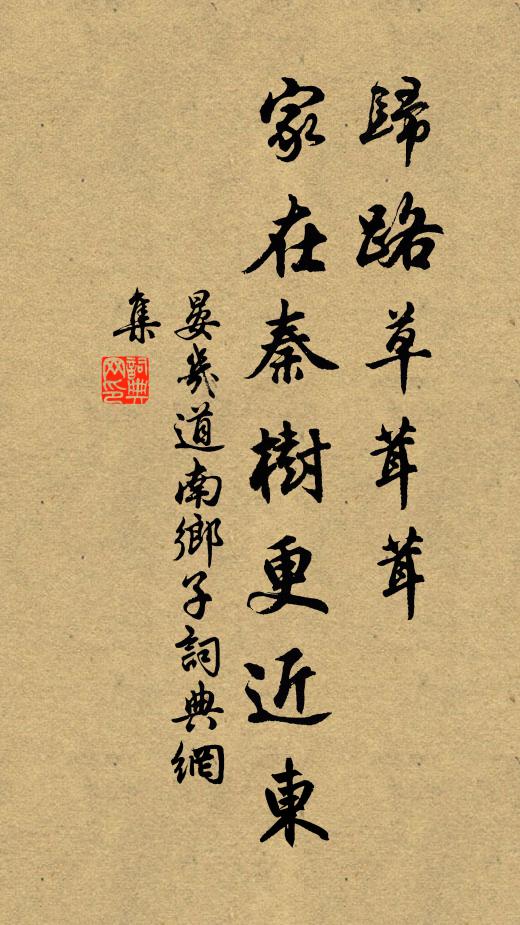 歸路草茸茸
家在秦樹更近東
晏幾道南鄉子詞典網
集
詞典網印